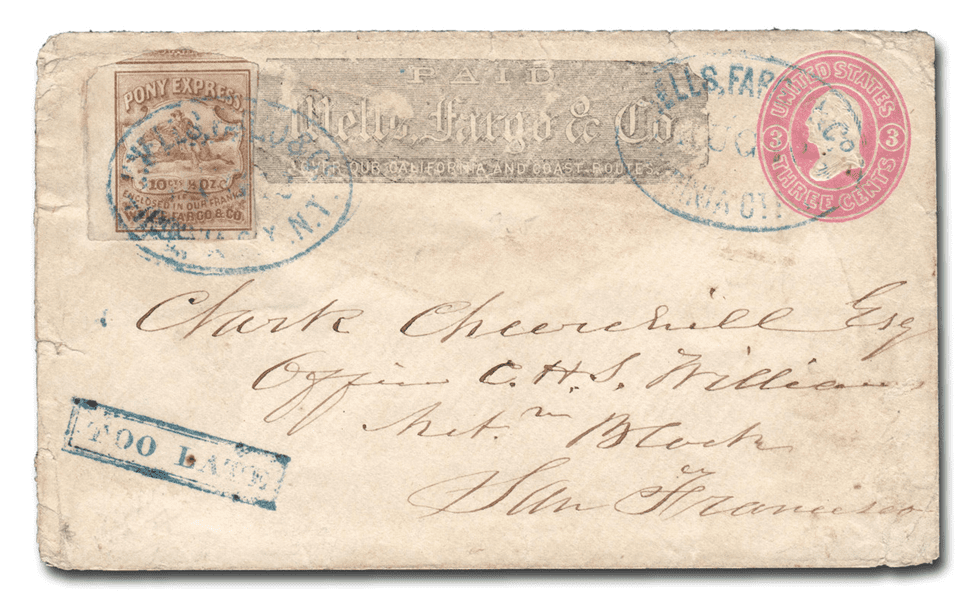 PONY EXPRESS
10 CTS ½ OZ.
ENCLOSED IN OUR FRANKS
FARGO & CO.
N.T.
PAID
Wells, Fargo & Co.
OVER OUR CALIFORNIA AND COAST ROUTES.
WELLS, FARGO
AUG
UNITED STATES
3 3
THREE CENTS
Clark Churchill Esq
Office C. H. S. Williams
Met.n Block
San Francisco
TOO LATE